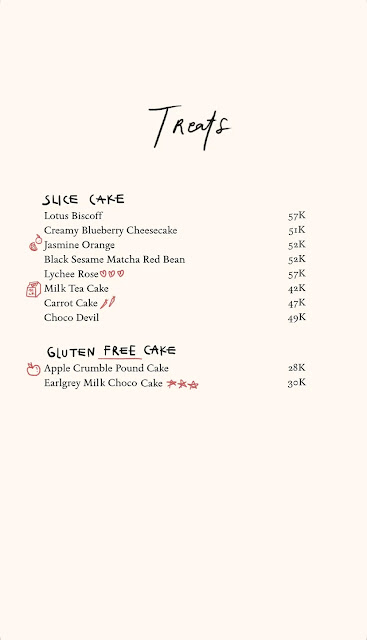 Treats
SLICE CAKE
Lotus Biscoff 57K
Creamy Blueberry Cheesecake 51K
Jasmine Orange 52K
Black Sesame Matcha Red Bean 52K
Lychee Rose 57K
Milk Tea Cake 42K
Carrot Cake 47K
Choco Devil 49K
GLUTEN FREE CAKE
Apple Crumble Pound Cake 28K
Earlgrey Milk Choco Cake 30K